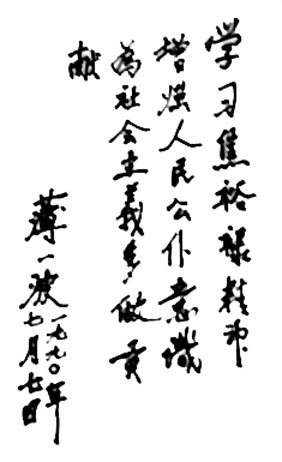 学习焦裕禄精神
增强人民公仆意识
为社会主义多做贡
献
薄一波
一九九〇年
七月七日